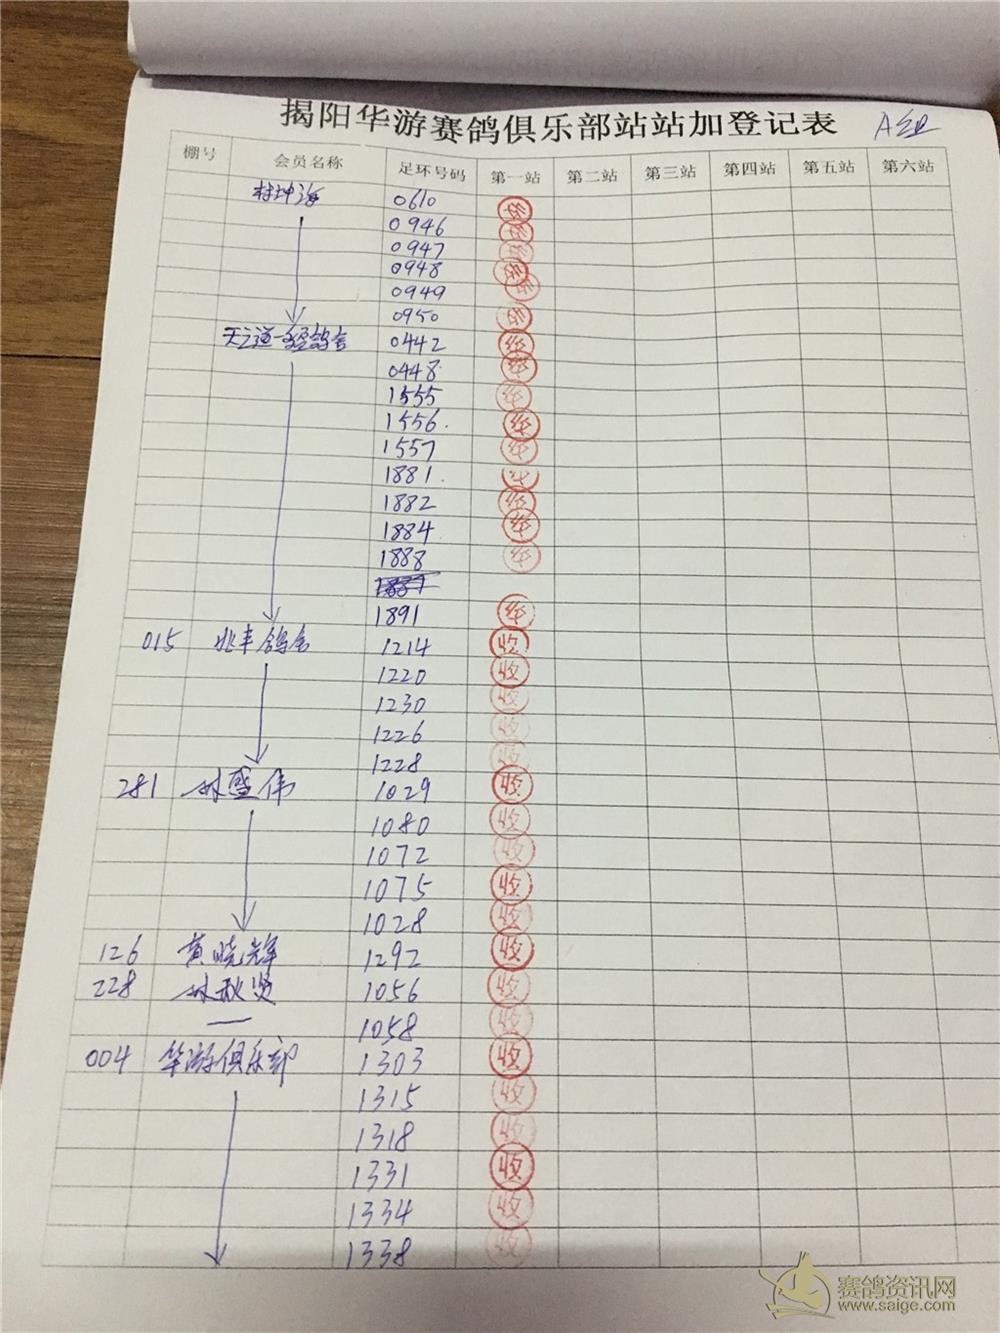 揭阳华游赛鸽俱乐部站站加登记表 A组
棚号 会员名称 足环号码 第一站 第二站 第三站 第四站 第五站 第六站
林坤海 0610
0946
0947
0948
0949
0950
天之道 鸽舍 0442
0448
1555
1556
1557
1881
1882
1884
1888
1891
015 兆丰鸽舍 1214 收
1220 收
1230 收
1226 收
1228 收
281 林盛伟 1029 收
1080 收
1072 收
1075 收
1028 收
126 黄晓辉 1292 收
228 林秋贤 1056 收
1058 收
004 华游俱乐部 1303 收
1315 收
1318 收
1331 收
1334 收
1338 收
赛鸽资讯网
www.saige.com